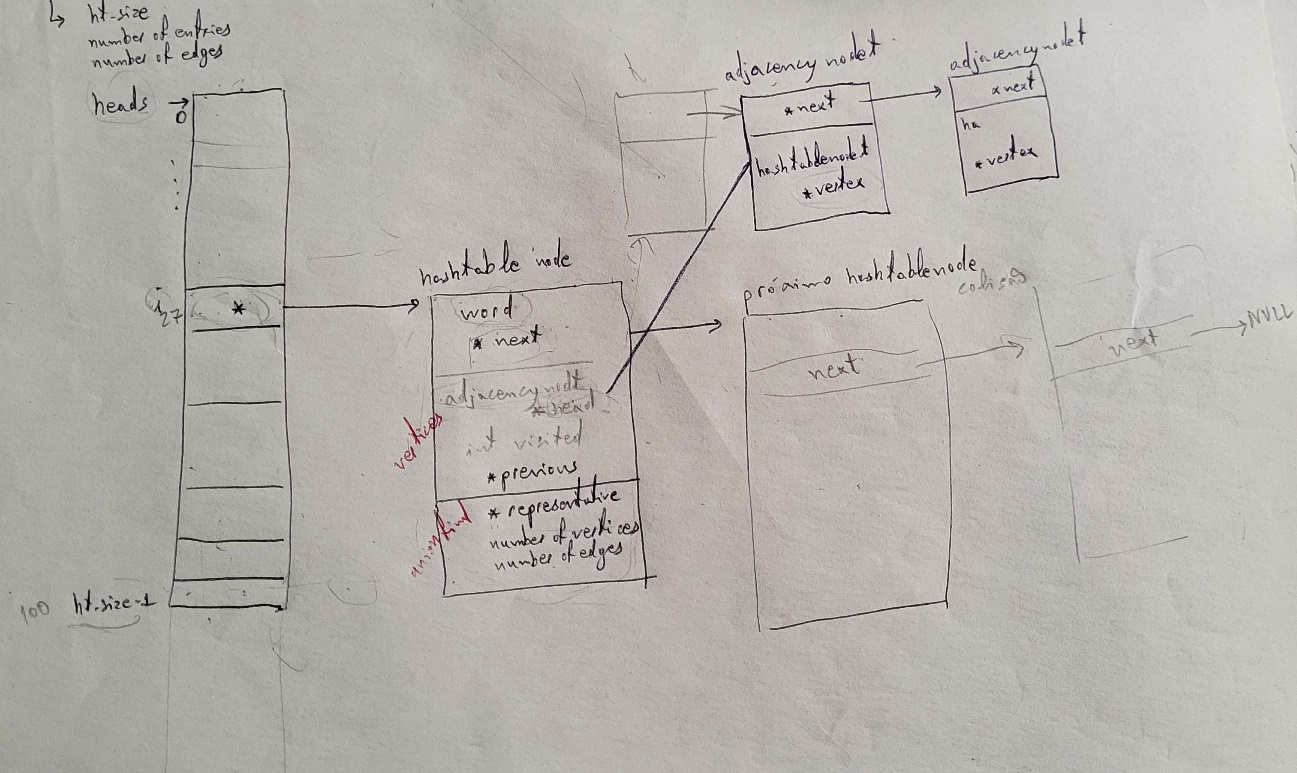 ↳ ht-size
number of entries
number of edges
heads →
0
i
27
*
100 ht-size-1
hashtable node
word
* next
adjacency nodt
* head
int visited
* previous
vertices
* representative
number of vertices
number of edges
union find
adjacency nodet
* next
hashtablenodet
* vertex
adjacency nodet
* next
ha
* vertex
próximo hashtablenode
next
colisão
next
NULL